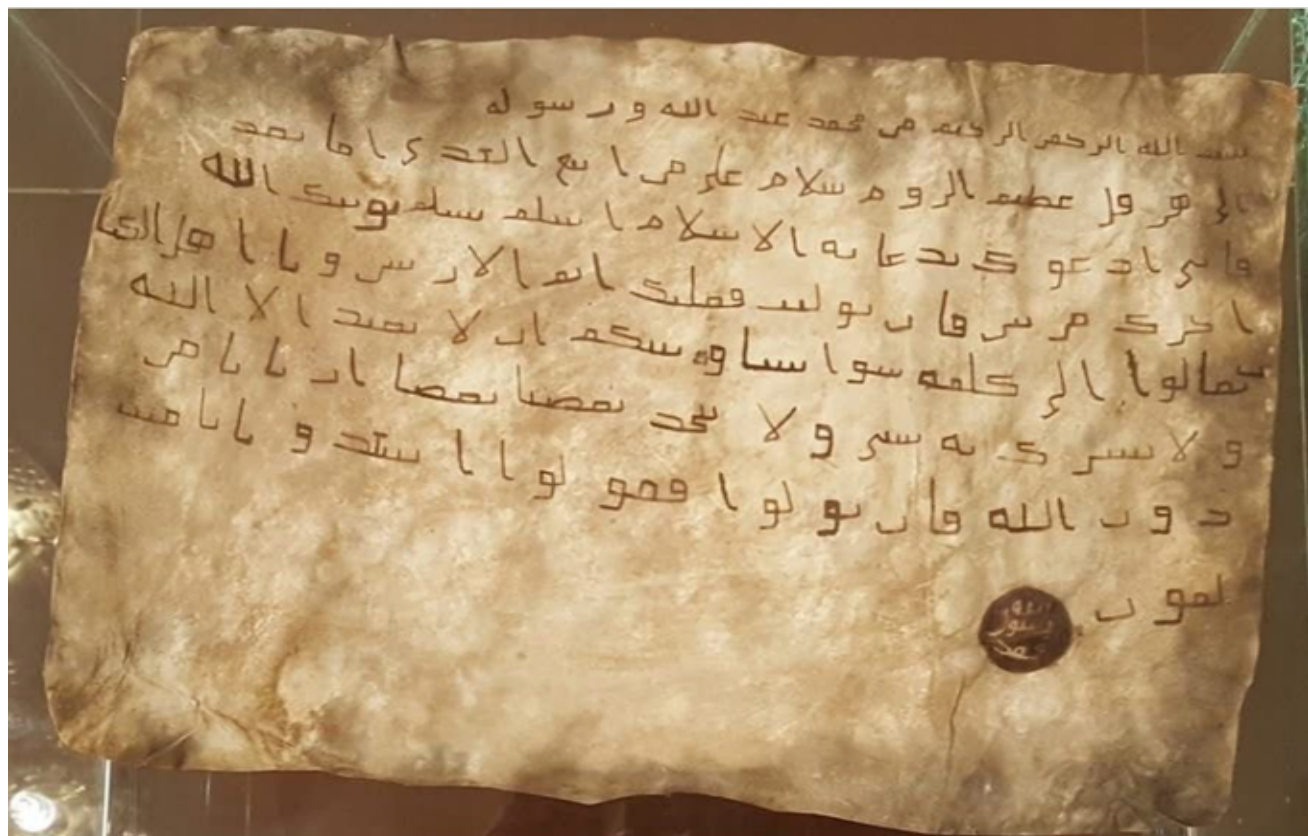 بسم الله الرحمن الرحيم من محمد عبد الله و رسوله
إلى هرقل عظيم الروم سلام على من اتبع الهدى اما بعد
فإني ادعوك بدعاية الاسلام اسلم تسلم يؤتك الله
اجرك مرتين فان توليت فعليك اثم الاريسين و يا اهل الكتا
ب تعالوا الى كلمة سوا بيننا وبينكم ان لا نعبد الا الله
و لا نشرك به شي و لا يتخذ بعضنا بعضا اربابا من
دون الله فان تولوا فقولوا اشهدوا بانا مس
لمون
الله
رسول
محمد